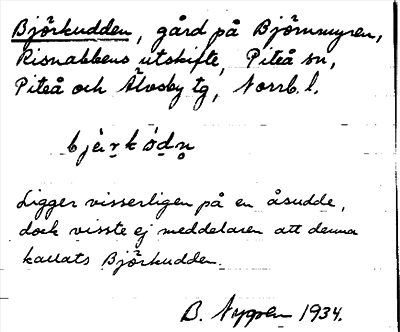 Björkudden, gård på Björnmyren,
Risnabbens utskifte, Piteå sn,
Piteå och Älvsby tg, Norrb. l.
bjè̱rkó̱dn̥
Ligger visserligen på en åsudde,
dock visste ej meddelaren att denna
kallats Björkudden.
B. Nygren 1934.